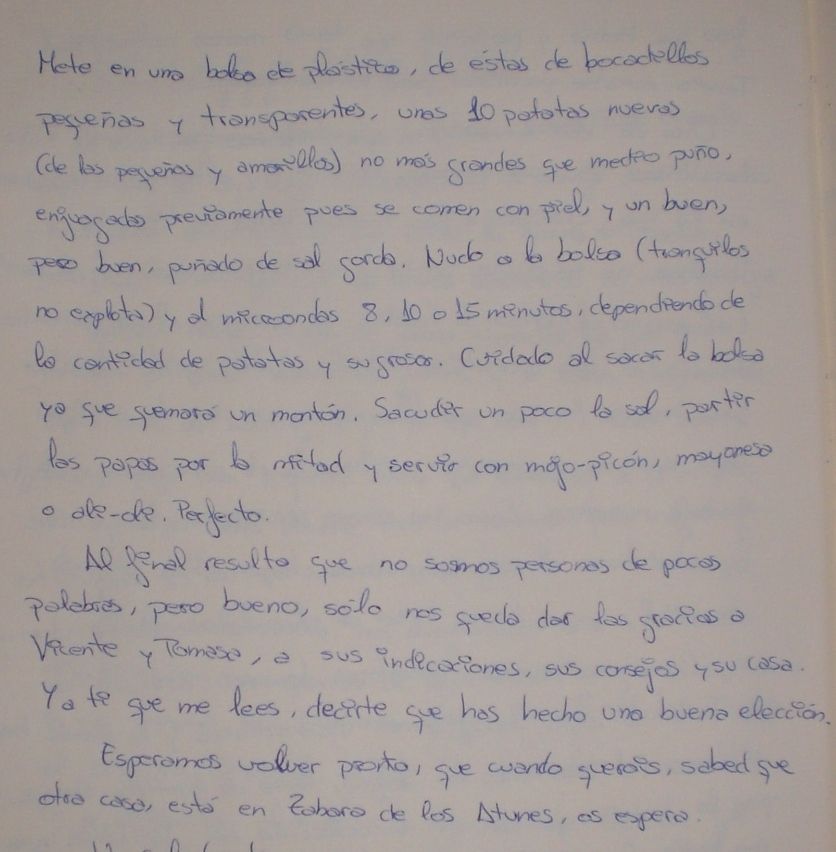 Mete en una bolsa de plástico, de éstas de bocadillos
pequeñas y transparentes, unas 10 patatas nuevas
(de las pequeñas y amarillas) no más grandes que medio puño,
enjuagadas previamente pues se comen con piel, y un buen,
pero buen, puñado de sal gorda. Nudo a la bolsa (tranquilos
no explota) y al microondas 8, 10 o 15 minutos, dependiendo de
la cantidad de patatas y su grosor. Cuidado al sacar la bolsa
ya que quemará un montón. Sacudir un poco la sal, partir
las papas por la mitad y servir con mojo-picón, mayonesa
o ali-oli. Perfecto.
Al final resulta que no somos personas de pocas
palabras, pero bueno, sólo nos queda dar las gracias a
Vicente y Tomasa, a sus indicaciones, sus consejos y su casa.
Y a ti que me lees, decirte que has hecho una buena elección.
Esperamos volver pronto, que cuando queráis, sabed que
otra casa, está en Zahara de los Atunes, os espera.